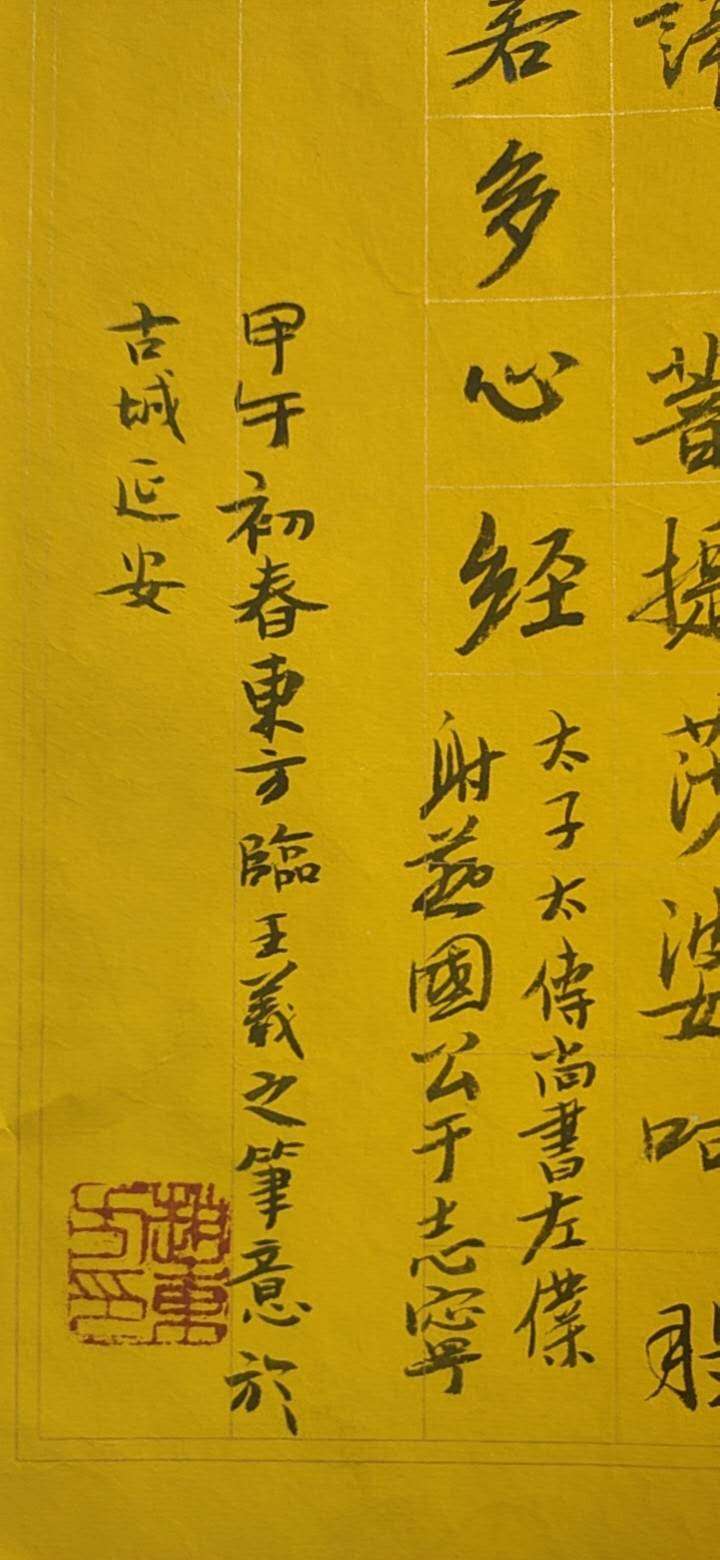 諦菩提莎婆呵般
若多心经
太子太傅尚書左僕
射燕國公于志寧
甲午初春東方臨王羲之筆意於
古城延安
趙東
方印